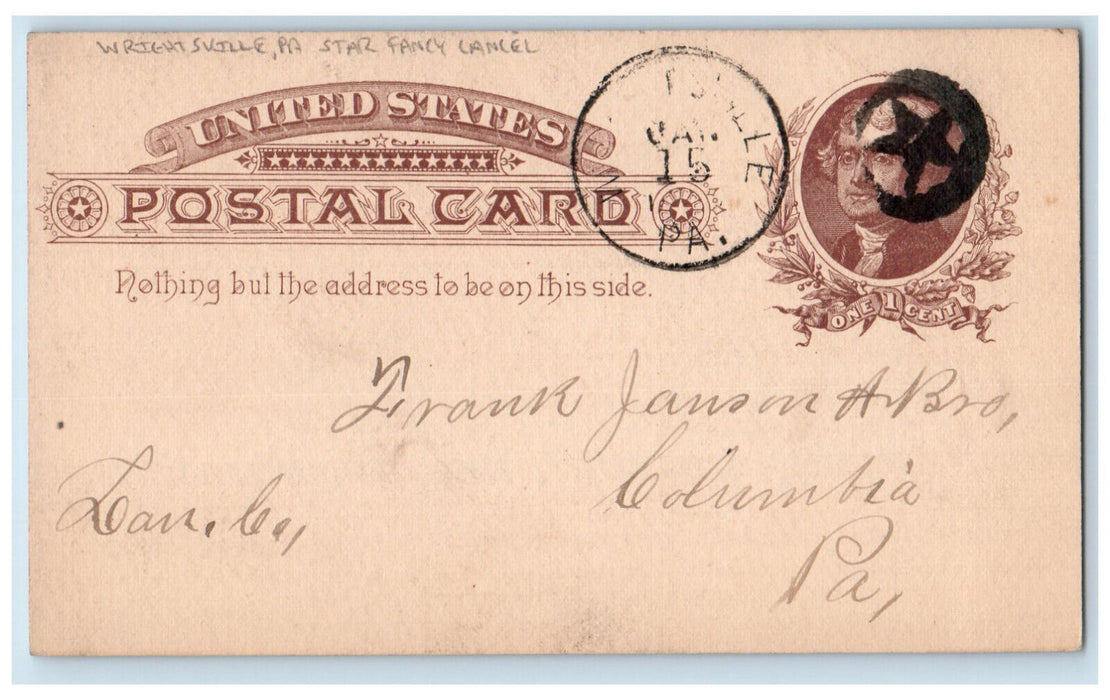 WRIGHTSVILLE, PA STAR FANCY CANCEL
UNITED STATES
POSTAL CARD
Nothing but the address to be on this side.
TSVILLE
JAN
15
PA.
ONE 1 CENT
Frank Janson & Bro,
Columbia
Lan. Co,
Pa,